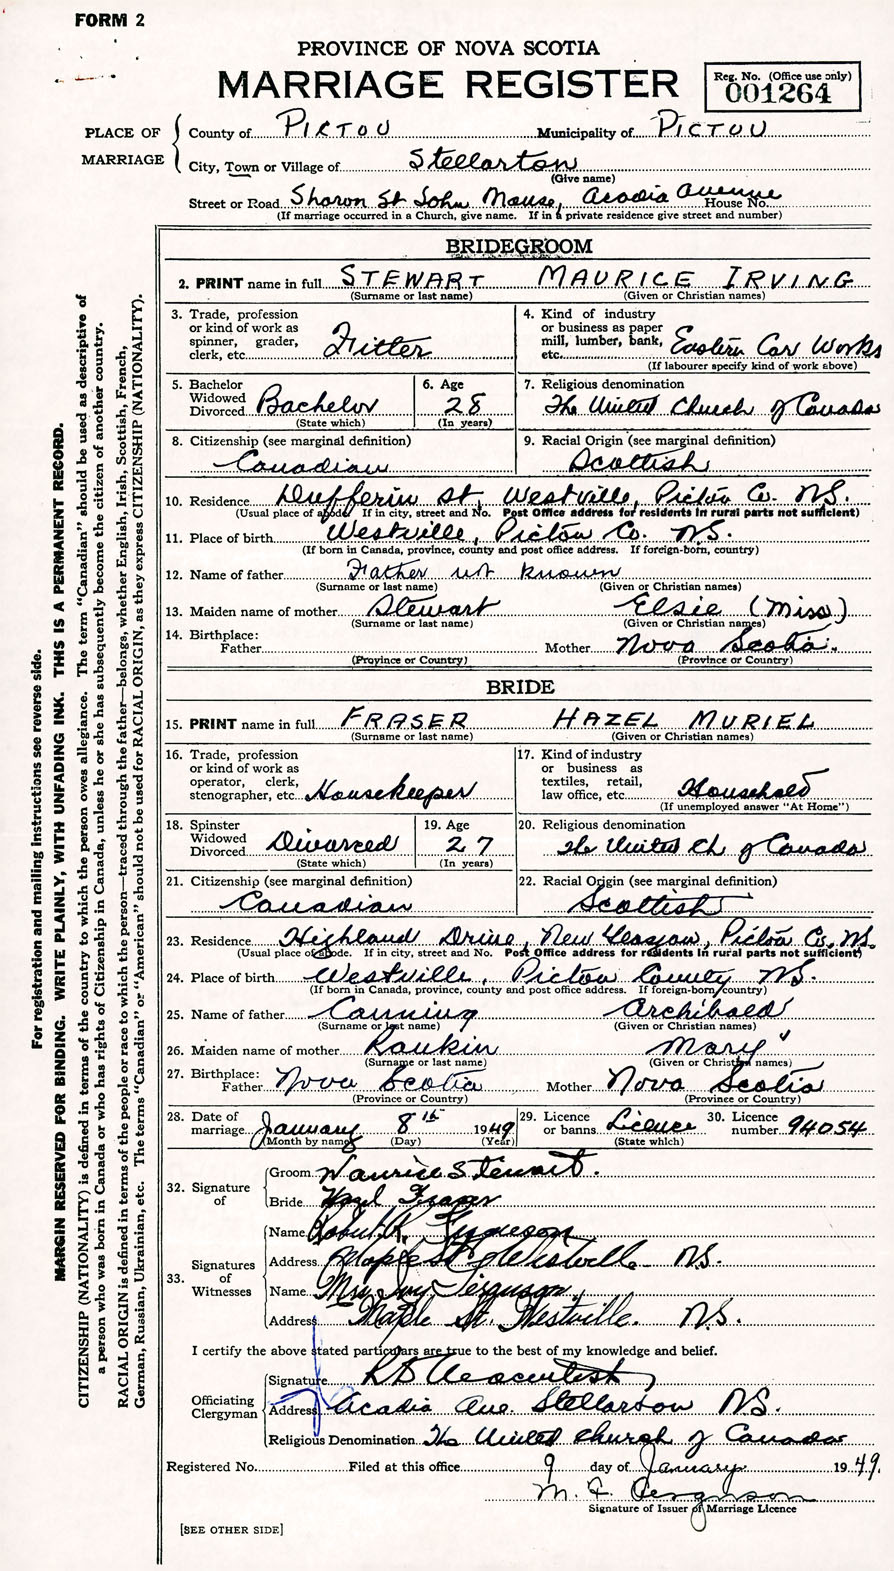 FORM 2
PROVINCE OF NOVA SCOTIA
MARRIAGE REGISTER
Reg. No. (Office use only)
001264
PLACE OF MARRIAGE
County of PICTOU Municipality of PICTOU
City, Town or Village of Stellarton
(Give name)
Street or Road Sharon St John Manse, Acadia Avenue House No.
(If marriage occurred in a Church, give name. If in a private residence give street and number)
BRIDEGROOM
2. PRINT name in full STEWART MAURICE IRVING
(Surname or last name) (Given or Christian names)
3. Trade, profession or kind of work as spinner, grader, clerk, etc. Fitter
4. Kind of industry or business as paper mill, lumber, bank, etc. Eastern Car Works
(If labourer specify kind of work above)
5. Bachelor Widowed Divorced Bachelor
(State which)
6. Age 28
(In years)
7. Religious denomination
The United Church of Canada
8. Citizenship (see marginal definition)
Canadian
9. Racial Origin (see marginal definition)
Scottish
10. Residence Dufferin St, Westville, Pictou Co. N.S.
(Usual place of abode. If in city, street and No. Post Office address for residents in rural parts not sufficient)
11. Place of birth Westville, Pictou Co. N.S.
(If born in Canada, province, county and post office address. If foreign-born, country)
12. Name of father Father not known
(Surname or last name) (Given or Christian names)
13. Maiden name of mother Stewart Elsie (Miss)
(Surname or last name) (Given or Christian names)
14. Birthplace: Father Mother Nova Scotia.
(Province or Country) (Province or Country)
BRIDE
15. PRINT name in full FRASER HAZEL MURIEL
(Surname or last name) (Given or Christian names)
16. Trade, profession or kind of work as operator, clerk, stenographer, etc. Housekeeper
17. Kind of industry or business as textiles, retail, law office, etc. Household
(If unemployed answer "At Home")
18. Spinster Widowed Divorced Divorced
(State which)
19. Age 27
(In years)
20. Religious denomination
The United Ch of Canada
21. Citizenship (see marginal definition)
Canadian
22. Racial Origin (see marginal definition)
Scottish
23. Residence Highland Drive, New Glasgow, Pictou Co. N.S.
(Usual place of abode. If in city, street and No. Post Office address for residents in rural parts not sufficient)
24. Place of birth Westville, Pictou County N.S.
(If born in Canada, province, county and post office address. If foreign-born, country)
25. Name of father Canning Archibald
(Surname or last name) (Given or Christian names)
26. Maiden name of mother Rankin Mary
(Surname or last name) (Given or Christian names)
27. Birthplace: Father Nova Scotia Mother Nova Scotia
(Province or Country) (Province or Country)
28. Date of marriage January 8th 1949
(Month by name) (Day) (Year)
29. Licence or banns Licence
(State which)
30. Licence number 94054
32. Signature of
Groom Maurice Stewart.
Bride Hazel Fraser
33. Signatures of Witnesses
Name Robert Ferguson
Address Maple St. Westville N.S.
Name Mrs Ferguson,
Address Maple St. Westville. N.S.
I certify the above stated particulars are true to the best of my knowledge and belief.
Officiating Clergyman
Signature
Address Acadia Ave. Stellarton N.S.
Religious Denomination The United Church of Canada
Registered No. Filed at this office 9 day of January 1949.
M. F. Ferguson
Signature of Issuer of Marriage Licence
[SEE OTHER SIDE]
For registration and mailing instructions see reverse side.
MARGIN RESERVED FOR BINDING. WRITE PLAINLY, WITH UNFADING INK. THIS IS A PERMANENT RECORD.
CITIZENSHIP (NATIONALITY) is defined in terms of the country to which the person owes allegiance. The term "Canadian" should be used as descriptive of
a person who was born in Canada or who has rights of Citizenship in Canada, unless he or she has subsequently become the citizen of another country.
RACIAL ORIGIN is defined in terms of the people or race to which the person—traced through the father—belongs, whether English, Irish, Scottish, French,
German, Russian, Ukrainian, etc. The terms "Canadian" or "American" should not be used for RACIAL ORIGIN, as they express CITIZENSHIP (NATIONALITY).